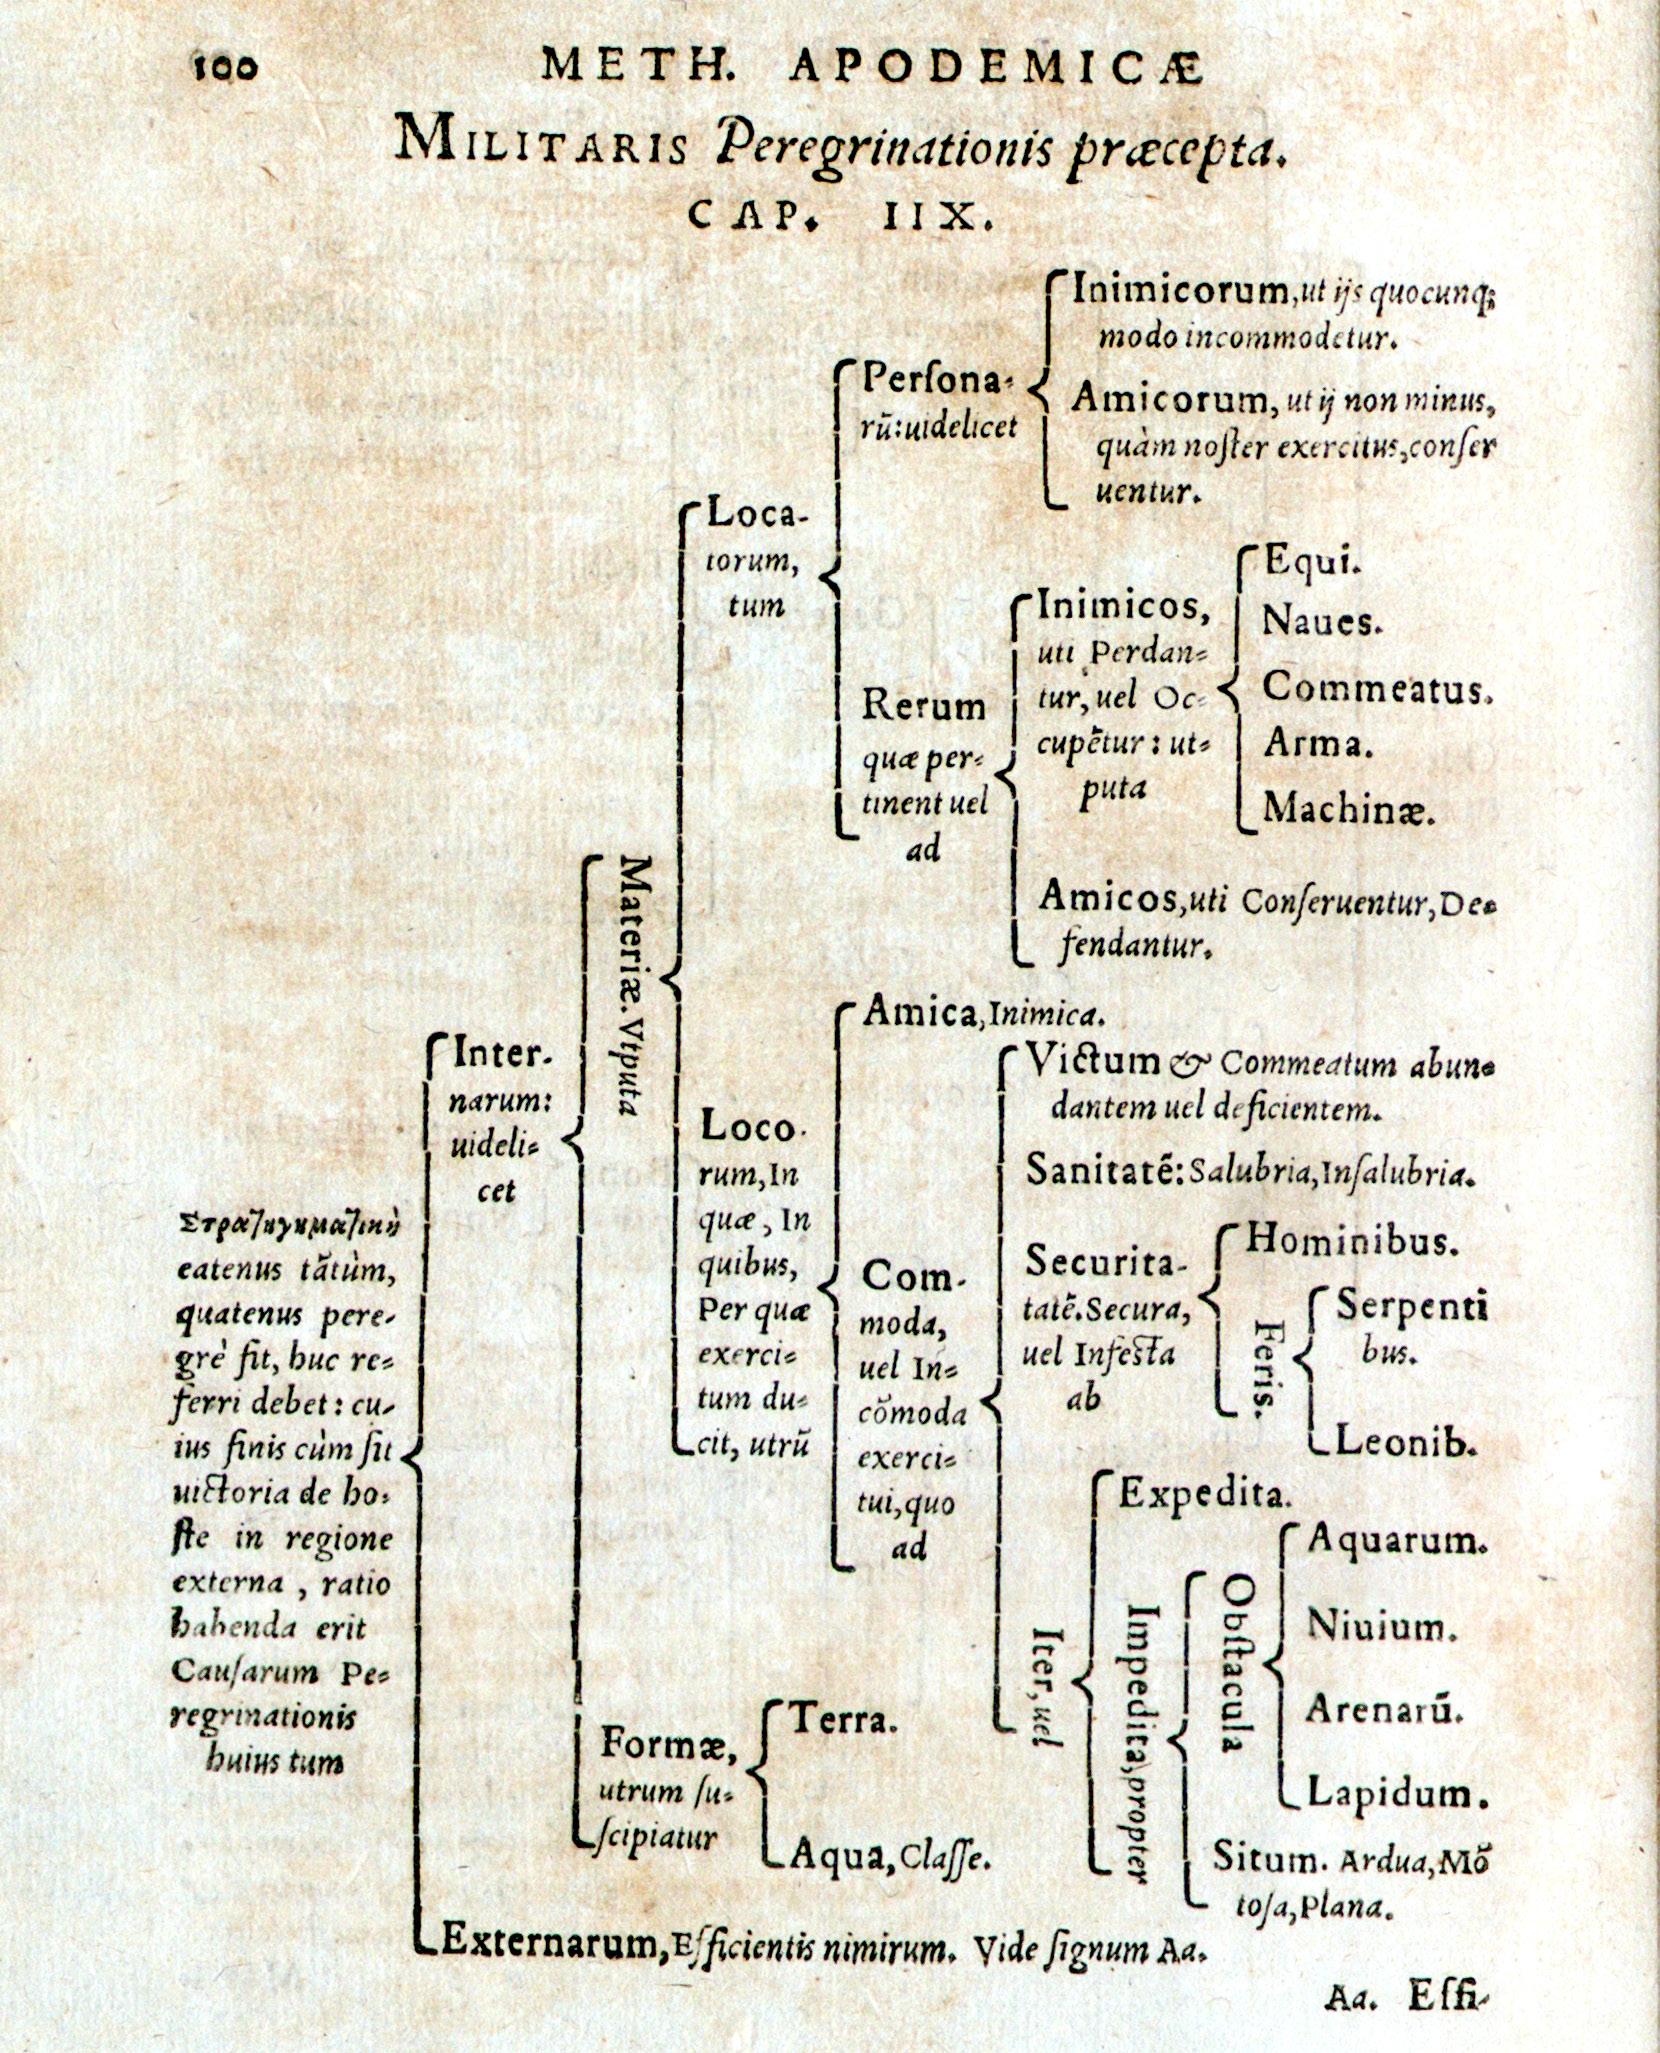 100 METH. APODEMICÆ
MILITARIS Peregrinationis præcepta.
CAP. IIX.
Στρατηγηματικὴ
eatenus tãtùm,
quatenus pere-
grè fit, huc re=
ferri debet: cu-
ius finis cùm ſit
uictoria de ho=
ſte in regione
externa, ratio
habenda erit
Cauſarum Pe=
regrinationis
huius tum
Inter-
narum:
uideli=
cet
Materiæ. Vtputa
Loca-
torum,
tum
Perſona-
rũ: uidelicet
Inimicorum, ut ijs quocunq;
modo incommodetur.
Amicorum, ut ij non minus,
quàm noſter exercitus, conſer
uentur.
Rerum
quæ per=
tinent uel
ad
Inimicos,
uti Perdan=
tur, uel Oc=
cupẽtur: ut=
puta
Equi.
Naues.
Commeatus.
Arma.
Machinæ.
Amicos, uti Conſeruentur, De=
fendantur.
Loco-
rum, In
quæ, In
quibus,
Per quæ
exerci=
tum du=
cit, utrũ
Amica, Inimica.
Com-
moda,
uel In=
cõmoda
exerci=
tui, quo
ad
Victum & Commeatum abun=
dantem uel deficientem.
Sanitatẽ: Salubria, Inſalubria.
Securita-
tatẽ. Secura,
uel Infeſta
ab
Hominibus.
Feris.
Serpenti
bus.
Leonib.
Iter, uel
Expedita.
Impedita, propter
Obſtacula
Aquarum.
Niuium.
Arenarũ.
Lapidum.
Situm. Ardua, Mõ
toſa, Plana.
Formæ,
utrum ſu=
ſcipiatur
Terra.
Aqua, Claſſe.
Externarum, Efficientis nimirum. Vide ſignum Aa.
Aa. Effi-